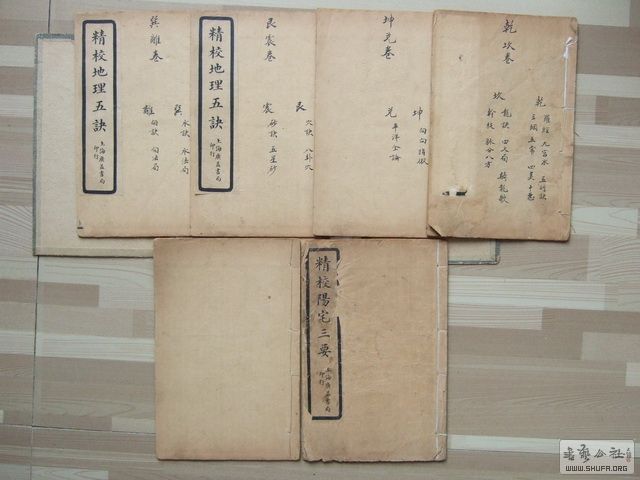 精校地理五訣
上海廣益書局
印行
巽離卷
巽 水訣 水法局
離 向訣 向法局
精校地理五訣
上海廣益書局
印行
艮震卷
艮 穴訣 八卦穴
震 砂訣 五星砂
坤兌卷
坤 向向指
兌 平洋全論
乾坎卷
乾 羅經 九宮水 五行訣
三綱五常 四美十惡
坎 龍訣 四大局 騎龍歌
幹枝 脈分八方
精校陽宅三要
上海廣益書局
印行
書藝公社
WWW.SHUFA.ORG